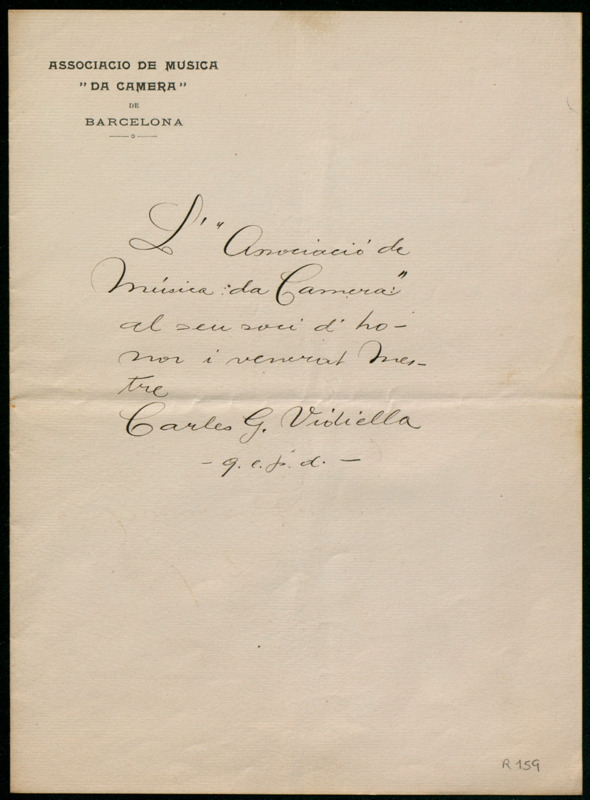 ASSOCIACIO DE MUSICA
"DA CAMERA"
DE
BARCELONA
L' "Associació de
Música "da Camera"
al seu soci d' ho-
nor i venerat Mes-
tre
Carles G. Vidiella
- q. e. p. d. -
R 159